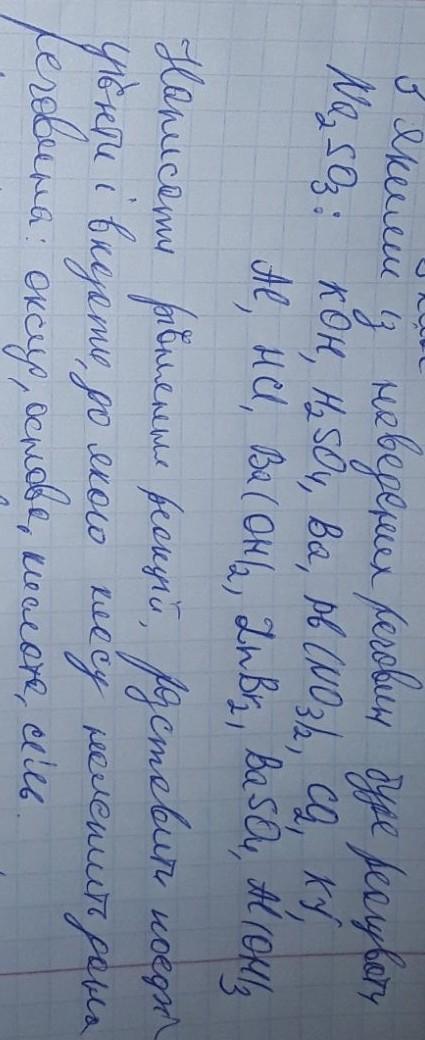 З якими із наведених речовин буде реагувати
Na₂SO₃: KOH, H₂SO₄, Ba, Pb(NO₃)₂, CO₂, KI,
Al, HCl, Ba(OH)₂, ZnBr₂, BaSO₄, Al(OH)₃
Написати рівняння реакцій, розставити коефі-
цієнти і вказати, до якого класу належить дана
речовина: оксид, основа, кислота, сіль.